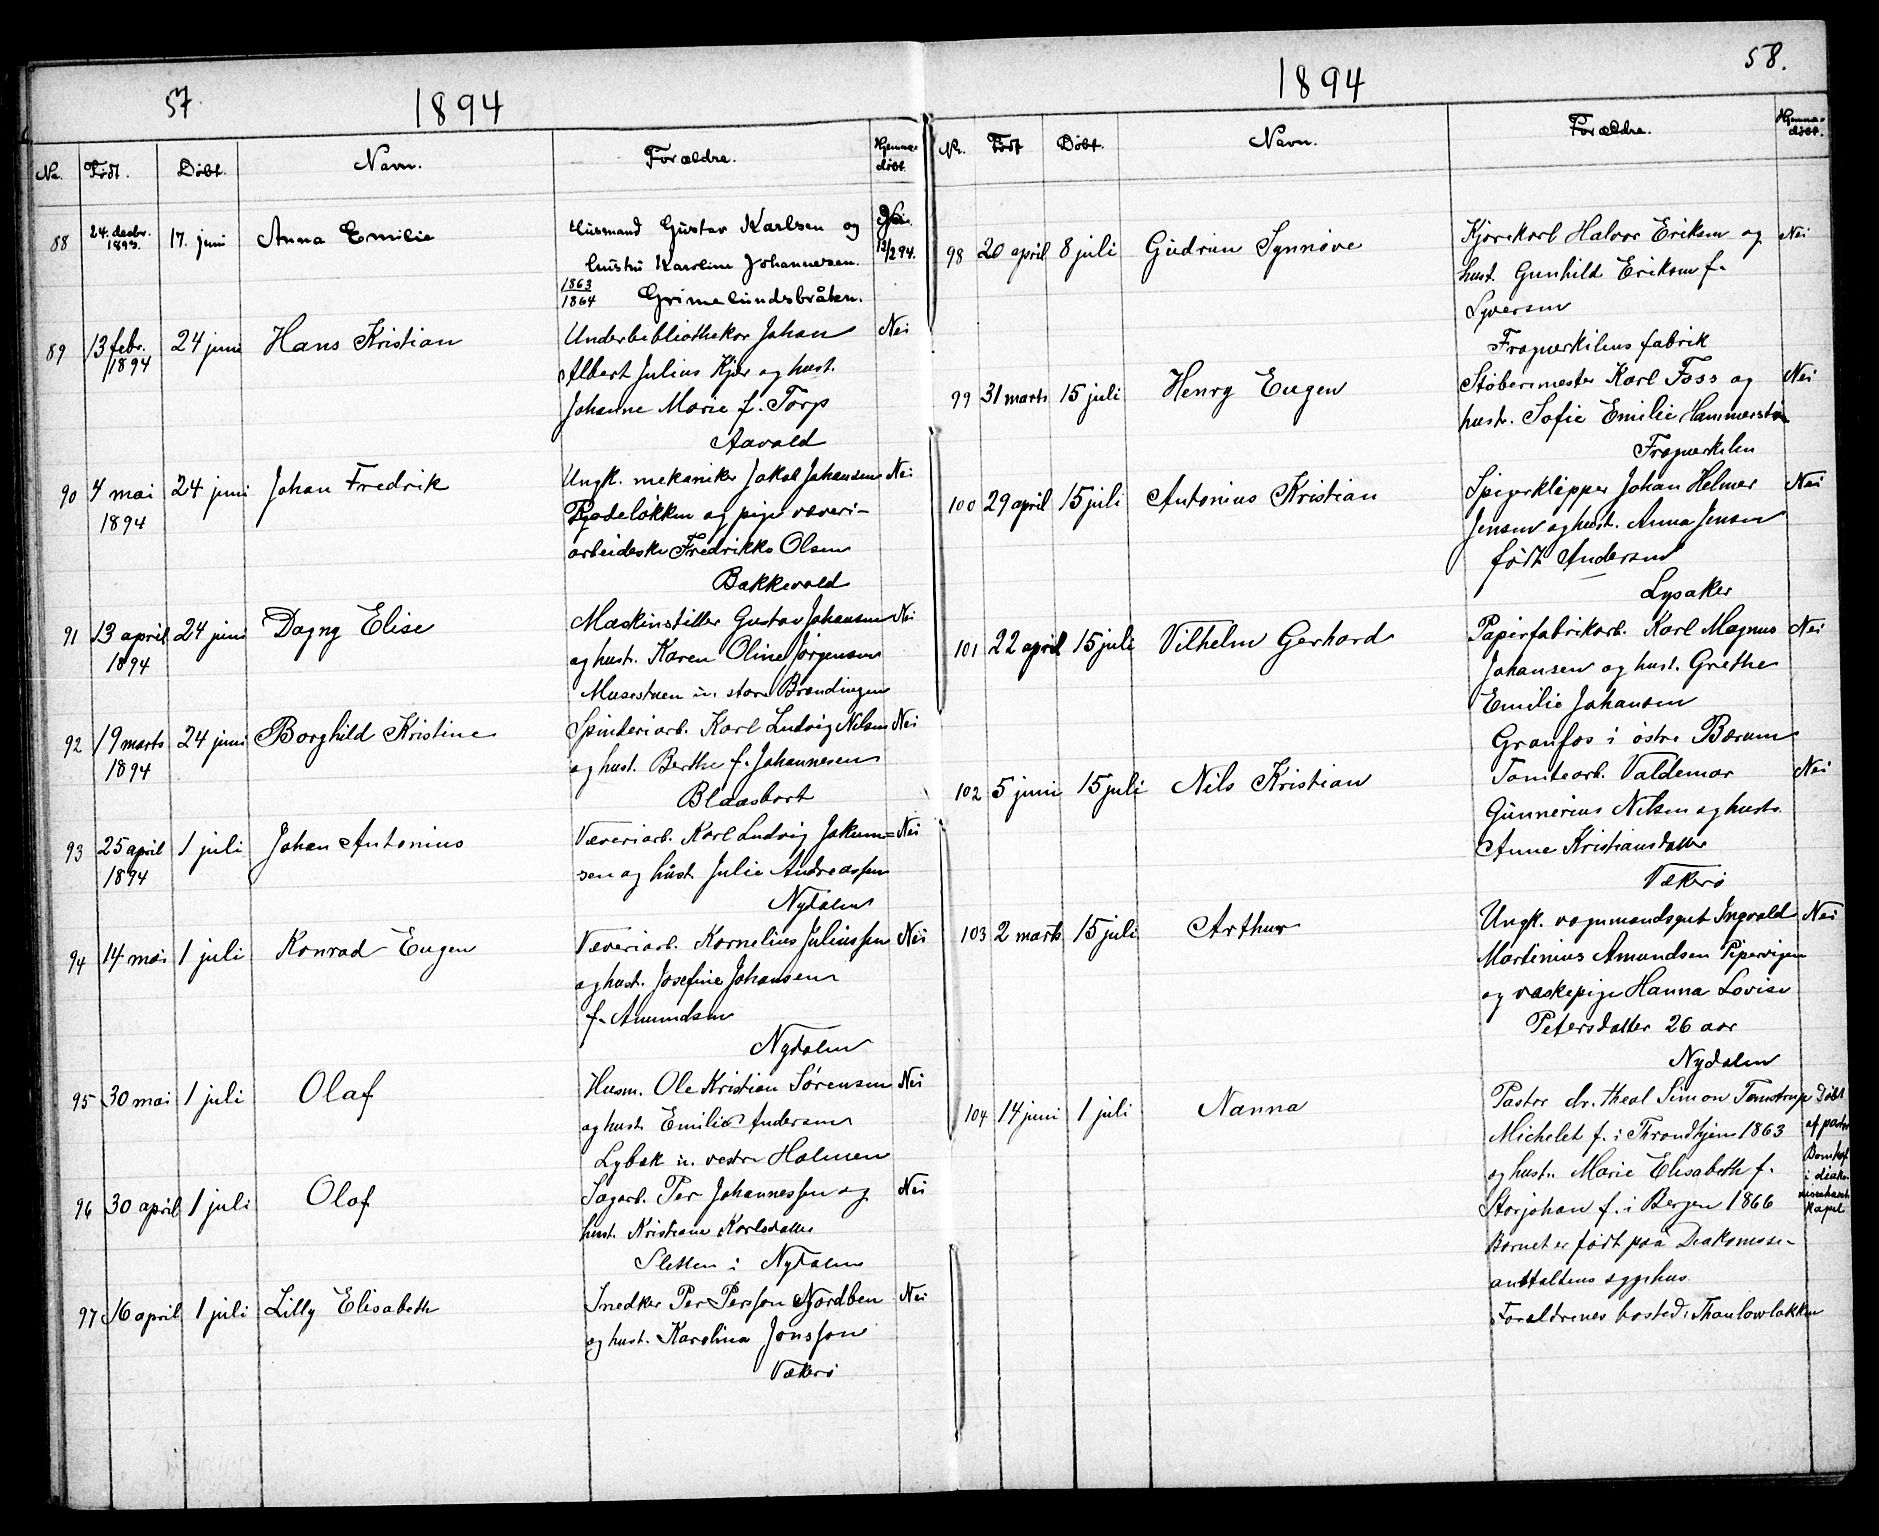 57.
1894
No. Født. Døbt. Navn. Forældre. Hjemme-
døbt.
88 24. decbr. 1893. 17. juni Anna Emilie Husmand Gustav Karlsen og
hustru Karoline Johannesen. 13/2 94.
1863
1864 Grimelundsbråten.
89 13 febr. 1894 24 juni Hans Kristian Underbibliothekar Johan Nei
Albert Julius Kjær og hust.
Johanne Marie f. Torp
Aavold
90 4 mai 1894 24 juni Johan Fredrik Ungk. mekaniker Jakob Johansen Nei
Rødeløkken og pige væveri-
arbeiderske Fredrikke Olsen
Bakkevold
91 13 april 1894 24 juni Dagny Elise Maskinstiller Gustav Johansen Nei
og hust. Karen Oline Jørgensen
Musestuen u. store Brændingen
92 19 marts 1894 24 juni Borghild Kristine Spinderiarb. Karl Ludvig Nilsen Nei
og hust. Berthe f. Johannesen
Blaasbort
93 25 april 1894 1 juli Johan Antonius Væveriarb. Karl Ludvig Jakum= Nei
sen og hust. Julie Andreassen
Nydalen
94 14 mai 1 juli Konrad Eugen Væveriarb. Kornelius Juliussen Nei
og hust. Josefine Johansen
f. Amundsen
Nydalen
95 30 mai 1 juli Olaf Husm. Ole Kristian Sørensen Nei
og hust. Emilie Andersen
Lybæk u. vestre Holmen
96 30 april 1 juli Olaf Sagarb. Per Johannessen og Nei
hust. Kristiane Karlsdatter
Sletten i Nydalen
97 16 april 1 juli Lilly Elisabeth Snedker Per Persson Nordben Nei
og hust. Karolina Jonsson
Vækerø
58.
1894
Nr. Født Døbt. Navn. Forældre. Hjemme-
døbt.
98 20 april 8 juli Gudrun Synnøve Kjørekarl Halvor Eriksen og Nei
hust. Gunhild Eriksen f.
Syversen
Frognerkilens fabrik
99 31 marts 15 juli Henry Eugen Støbermester Karl Foss og Nei
hust. Sofie Emilie Hammerstøen
Frognerkilen
100 29 april 15 juli Antonius Kristian Spigerklipper Johan Helmer Nei
Jensen og hust. Anna Jensen
født Andersen
Lysaker
101 22 april 15 juli Vilhelm Gerhard Papirfabrikarb. Karl Magnus Nei
Johansen og hust. Grethe
Emilie Johansen
Granfos i østre Bærum
102 5 juni 15 juli Nils Kristian Tomtearb. Valdemar Nei
Gunnerius Nilsen og hust.
Anne Kristiansdatter
Vækerø
103 2 marts 15 juli Arthur Ungk. vognmandsgut Ingvald Nei
Martinius Amundsen Pipervigen
og vaskepige Hanna Lovise
Petersdatter 26 aar
Nydalen
104 14 juni 1 juli Nanna Pastor dr. theol Simon Temstrup Døbt
Michelet f. i Throndhjem 1863 af pastor
og hust. Marie Elisabeth f.
Storjohan f. i Bergen 1866 i diako-
Barnet er født paa Diakonisse- kapel
anstaltens sygehus.
Forældrenes bosted: Thaulowløkken